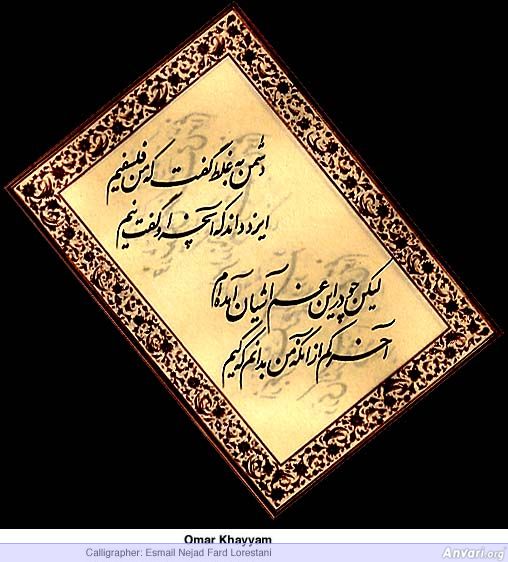 دشمن به غلط گفت که من فلسفیم
ایزد داند که آنچه او گفت نیم
لیکن چو در این غم آشیان آمده‌ام
آخر کم از آنکه من بدانم که کیم
Omar Khayyam
Calligrapher: Esmail Nejad Fard Lorestani
Anvari.org